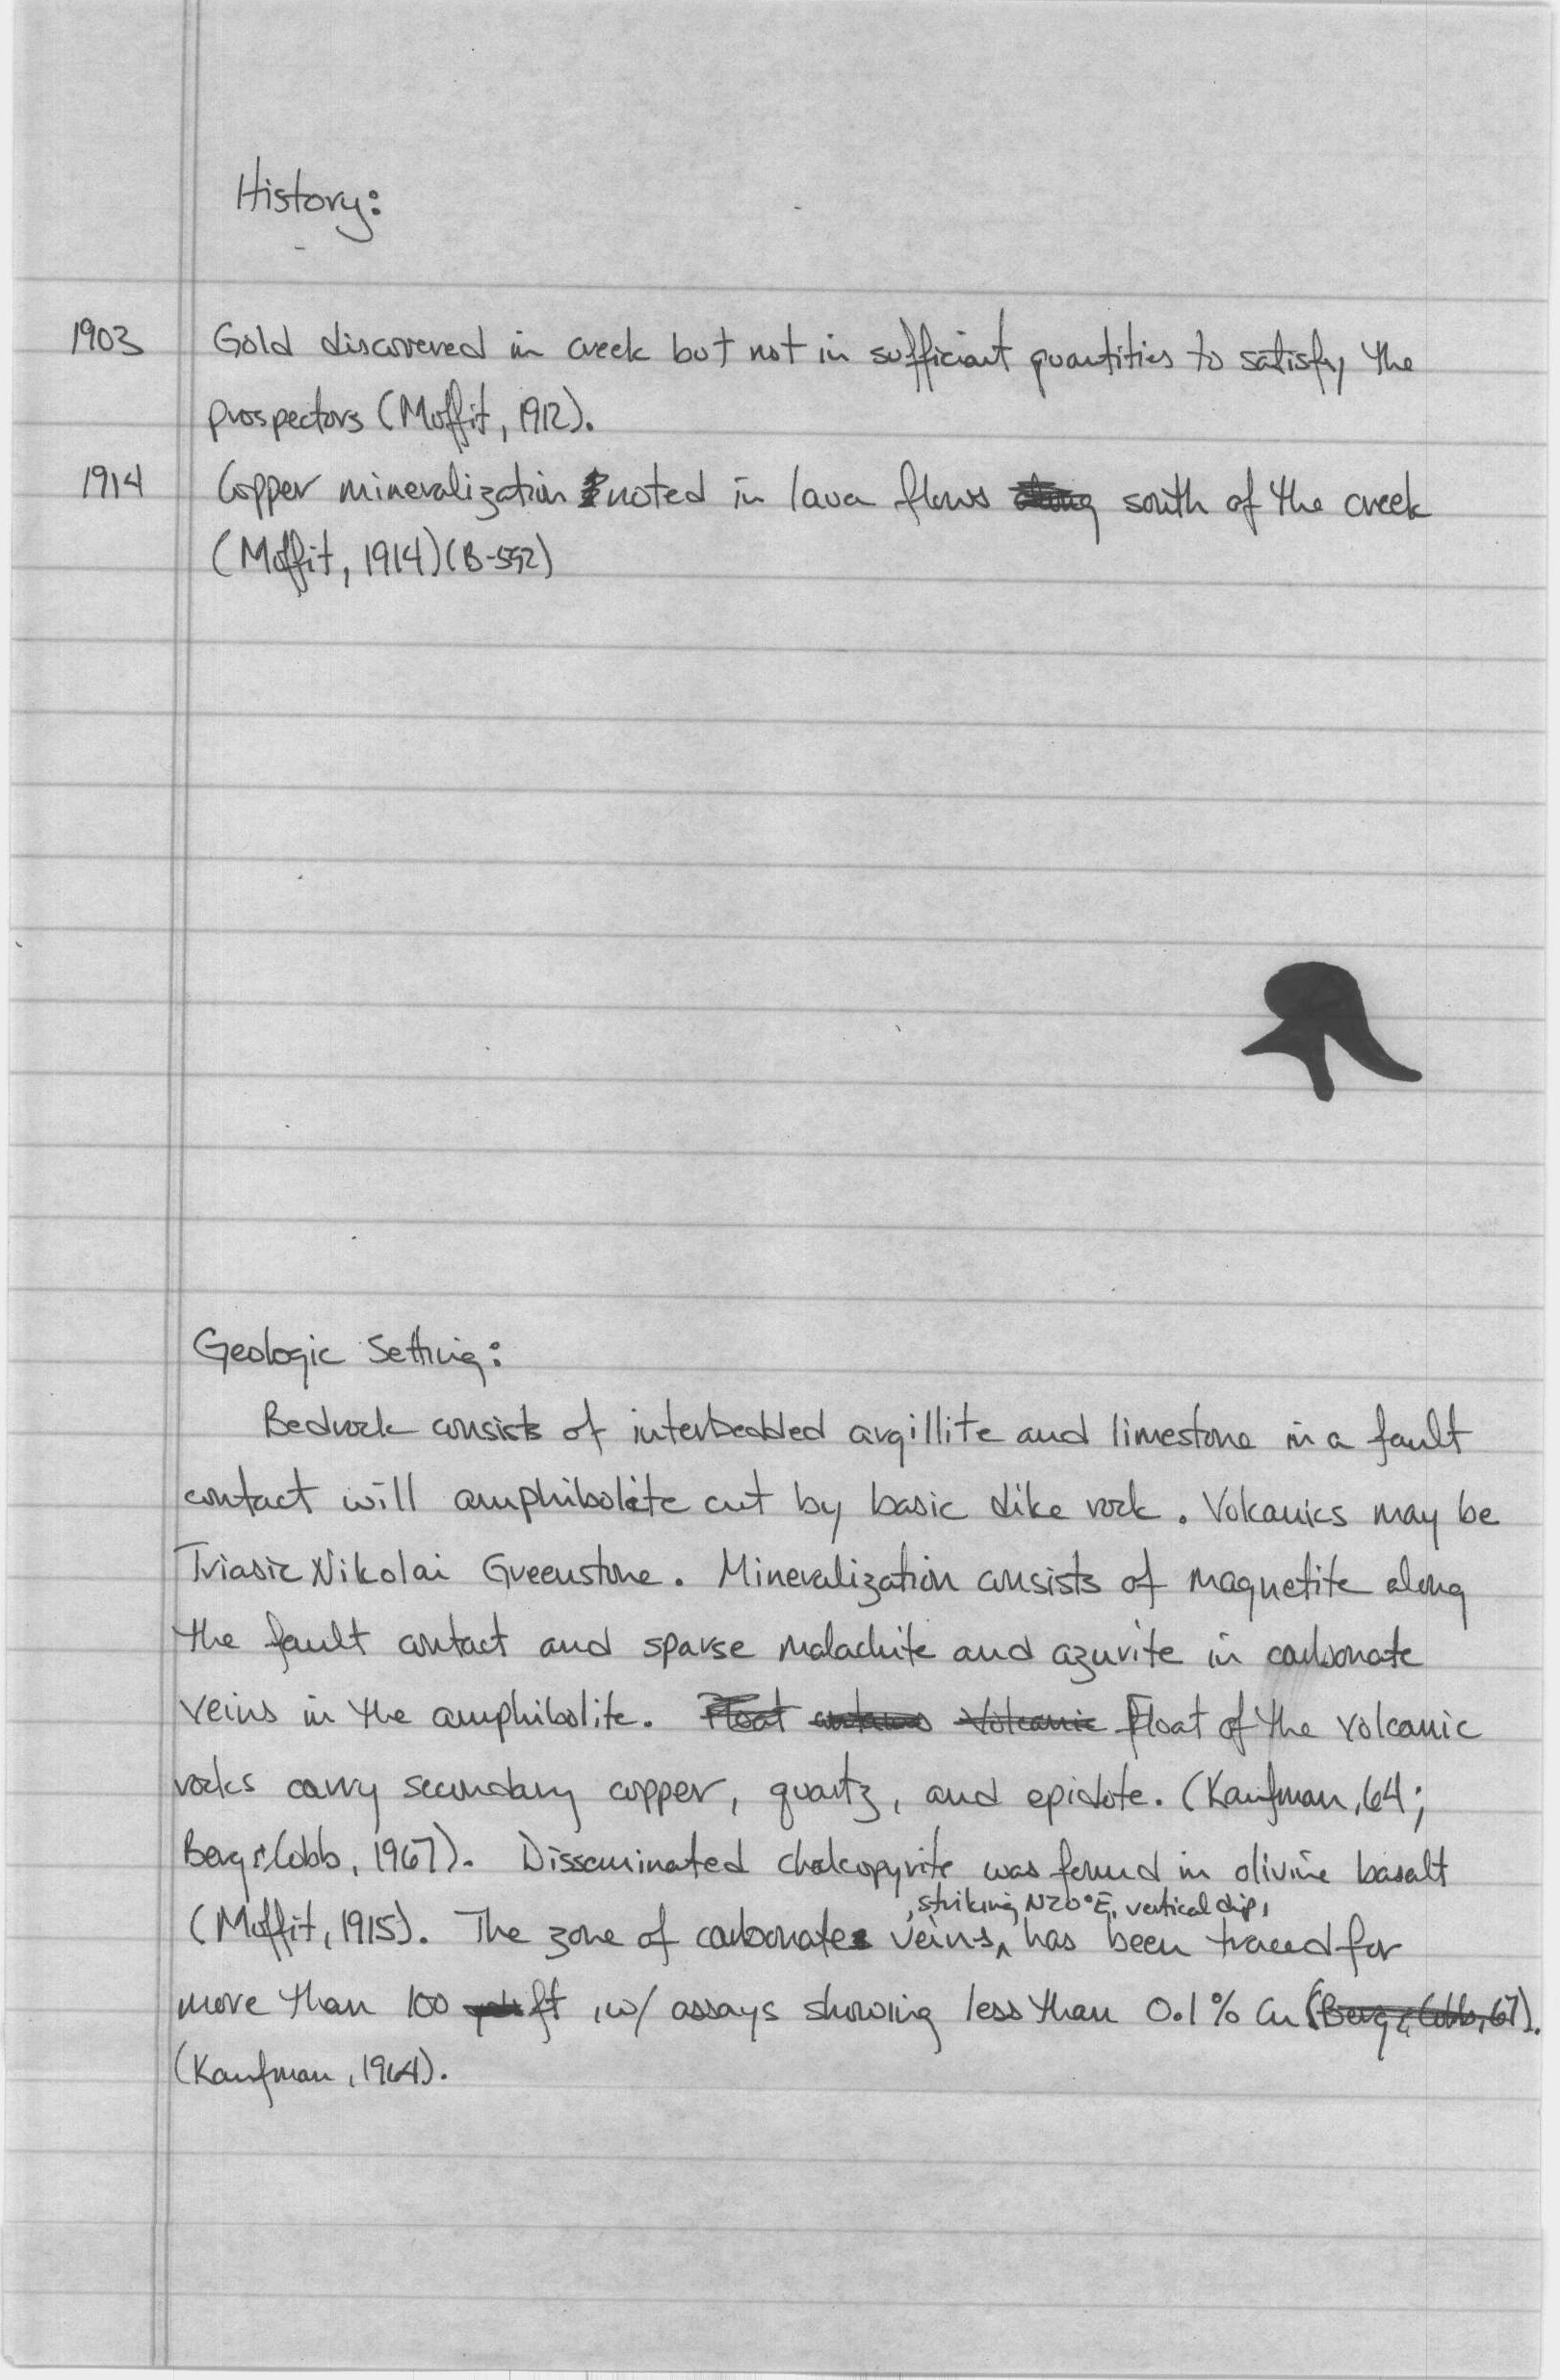 History:
1903 Gold discovered in creek but not in sufficient quantities to satisfy the
prospectors (Moffit, 1912).
1914 Copper mineralization noted in lava flows along south of the creek
(Moffit, 1914)(B-592)
Geologic Setting:
Bedrock consists of interbedded argillite and limestone in a fault
contact will amphibolite cut by basic dike rock. Volcanics may be
Triasic Nikolai Greenstone. Mineralization consists of magnetite along
the fault contact and sparse malachite and azurite in carbonate
veins in the amphibolite. Float contains Volcanic Float of the volcanic
rocks carry secondary copper, quartz, and epidote. (Kaufman, 64;
Berg & Cobb, 1967). Disseminated chalcopyrite was found in olivine basalt
, striking N20°E, vertical dip,
(Moffit, 1915). The zone of carbonate veins, has been traced for
more than 100 ft, w/ assays showing less than 0.1% Cu (Berg & Cobb, 67).
(Kaufman, 1964).